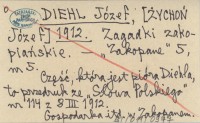 DIEHL Józef, [ŻYCHOŃ
Józef] 1912. Zagadki zako-
piańskie. — „Zakopane" 5,
nr 5.
Część, która jest pióra Diehla,
to przedruk ze „Słowa Polskiego"
nr 114 z 8 III 1912.
Gospodarka itd. w Zakopanem.